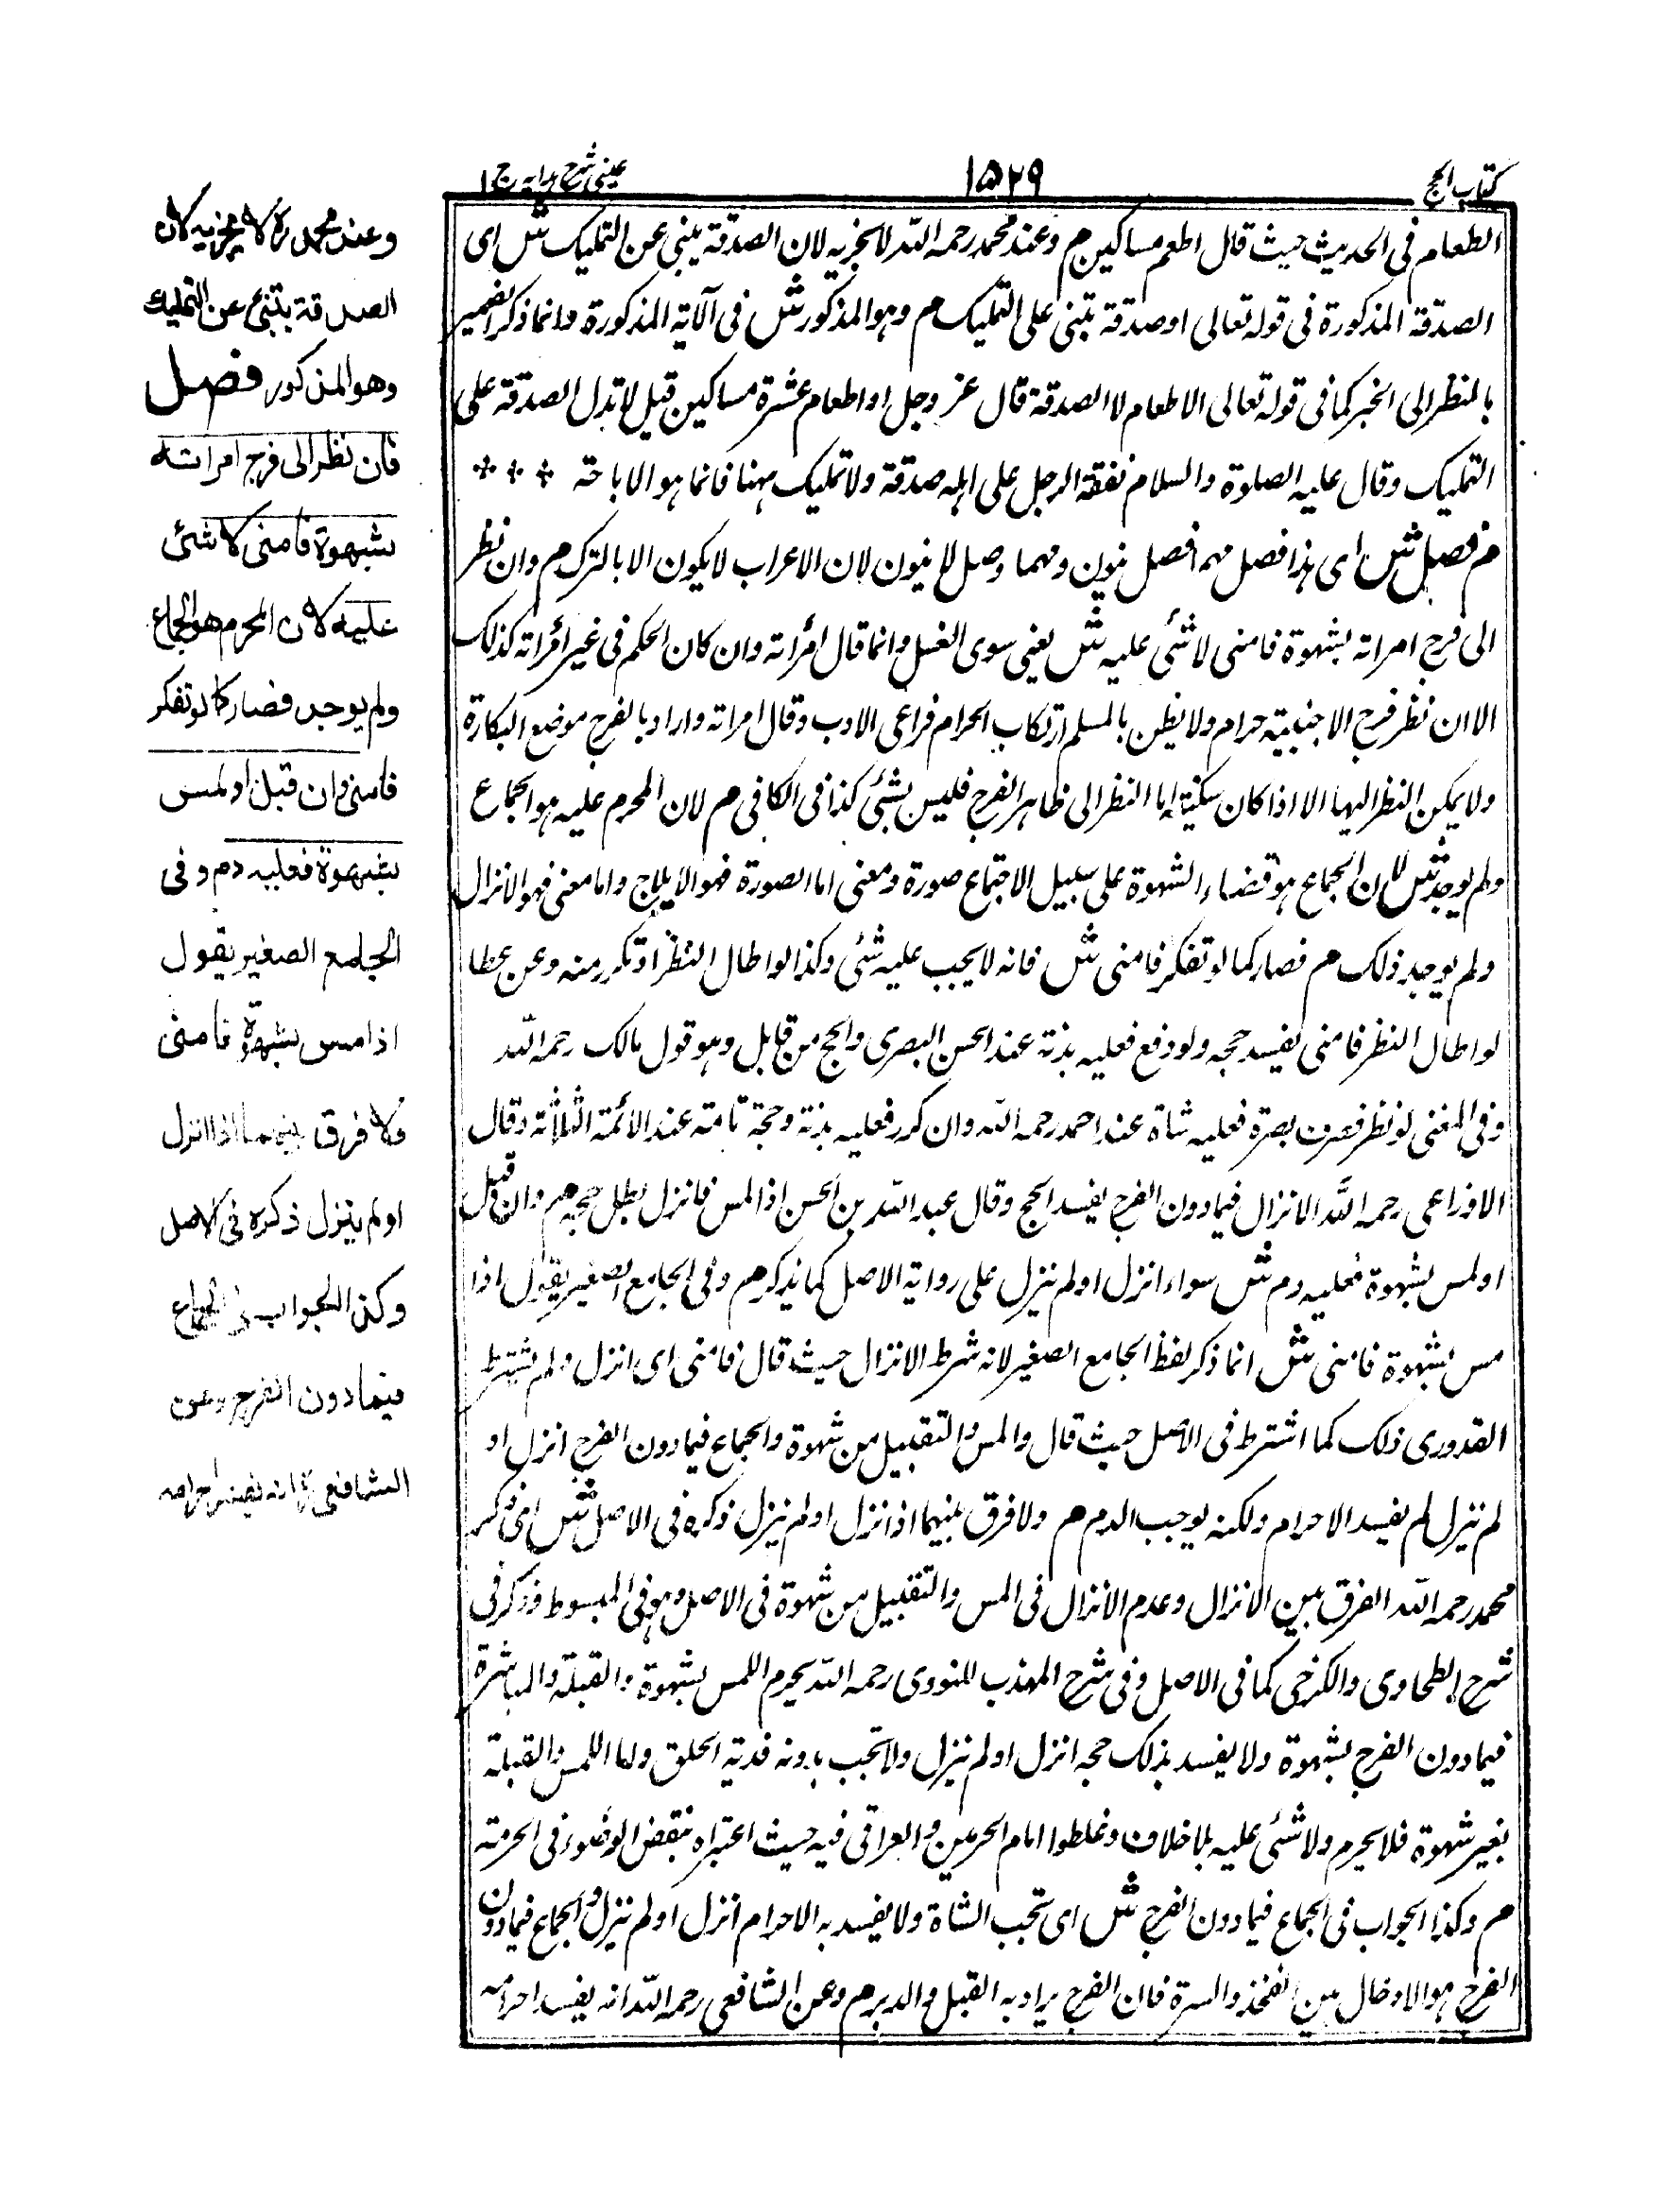 كتاب الحج
١٥٢٩
عينى شرح هدايه ج ١
الطعام فى الحديث حيث قال اطعم مساكين م وعند محمد رحمه الله لا يجزيه لان الصدقة ينبى عن التمليك ش اى
الصدقة المذكورة فى قوله تعالى او صدقة تبنى على التمليك م وهو المذكور ش فى الآية المذكورة وانما ذكر الضمير
بالنظر الى الخبر كما فى قوله تعالى الاطعام لا الصدقة قال عز وجل او اطعام عشرة مساكين قيل لا تدل الصدقة على
التمليك وقال عليه الصلوة والسلام نفقة الرجل على اهله صدقة ولا تمليك ههنا فانما هو الاباحة
م فصل ش اى هذا فصل مهما فصل نيون ومهما وصل لا نيون لان الاعراب لا يكون الا بالتركم وان نظر
الى فرج امراته بشهوة فامنى لا شئى عليه ش يعنى سوى الغسل وانما قال امرأته وان كان الحكم فى غير امرأته كذلك
الا ان نظر فرج الاجنبية حرام ولا يظن بالمسلم ارتكاب الحرام فراعى الادب وقال امراته واراد بالفرج موضع البكارة
ولا يمكن النظر اليها الا اذا كان متكئة اما النظر الى ظاهر الفرج فليس بشئى كذا فى الكافى م لان المحرم عليه هو الجماع
ولم يوجد ش لان الجماع هو قضاء الشهوة على سبيل الاجتماع صورة ومعنى اما الصورة فهو الايلاج واما معنى فهو الانزال
ولم يوجد ذلك م فصار كما لو تفكر فامنى ش فانه لا يجب عليه شئى وكذا لو اطال النظر او تكرر منه وعن عطا
لو اطال النظر فامنى يفسد حجه ولو دفع فعليه بدنة عند الحسن البصرى والحج من قابل وهو قول مالك رحمه الله
وفى المغنى لو نظر فصرف بصره فعليه شاة عند احمد رحمه الله وان كرر فعليه بدنة وحجة تامة عند الائمة الثلاثة وقال
الاوزاعى رحمه الله الانزال فيما دون الفرج يفسد الحج وقال عبد الله بن الحسن اذا لمس فانزل بطل حجه م وان قبل
او لمس بشهوة فعليه دم ش سواء انزل او لم ينزل على رواية الاصل كما يذكر م وفى الجامع الصغير يقول اذا
مس بشهوة فامنى ش انما ذكر لفظ الجامع الصغير لانه شرط الانزال حيث قال فامنى اى انزل ولم يشترط
القدورى ذلك كما اشترط فى الاصل حيث قال والمس والتقبيل من شهوة والجماع فيما دون الفرج انزل او
لم ينزل لم يفسد الاحرام ولكنه يوجب الدم م ولا فرق بينهما اذا نزل او لم ينزل ذكره فى الاصل ش اى ذكر
محمد رحمه الله الفرق بين الانزال وعدم الانزال فى المس والتقبيل من شهوة فى الاصل وهو فى المبسوط وذكر فى
شرح الطحاوى والكرخى كما فى الاصل وفى شرح المهذب للنووى رحمه الله يحرم اللمس بشهوة والقبلة والمباشرة
فيما دون الفرج بشهوة ولا يفسد بذلك حجه انزل او لم ينزل ولا تجب بدونه فدية الحلق واما اللمس والقبلة
بغير شهوة فلا يحرم ولا شئى عليه بلا خلاف وغلطوا امام الحرمين والعراقى فيه حيث اعتبراه بنقض الوضوء فى الحرمة
م وكذا الجواب فى الجماع فيما دون الفرج ش اى تجب الشاة ولا يفسد به الاحرام انزل او لم ينزل والجماع فيما دون
الفرج هو الادخال بين الفخذ والسرة فان الفرج يراد به القبل والدبر م وعن الشافعى رحمه الله انه يفسد احرامه
وعند محمد رہ لا يجزيه لان
الصدقة ينبئ عن التمليك
وهو المذكور فصل
فان نظر الى فرج امراته
بشهوة فامنى لا شئ
عليه لان المحرم هو الجماع
ولم يوجد فصار كما لو تفكر
فامنى وان قبل او لمس
بشهوة فعليه دم وفى
الجامع الصغير يقول
اذا مس بشهوة فامنى
ولا فرق بينهما اذا انزل
او لم ينزل ذكره فى الاصل
وكذا الجواب فى الجماع
فيما دون الفرج وعن
الشافعى رہ انه يفسد احرامه